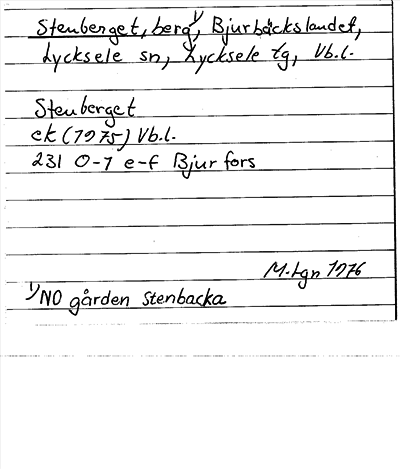 Stenberget, berg¹⁾, Bjurbäckslandet,
Lycksele sn, Lycksele tg, Vb.l.
Stenberget
ek (1975) Vb.l.
23I 0-1 e-f Bjurfors
M.Lgn 1976
¹⁾NO gården Stenbacka